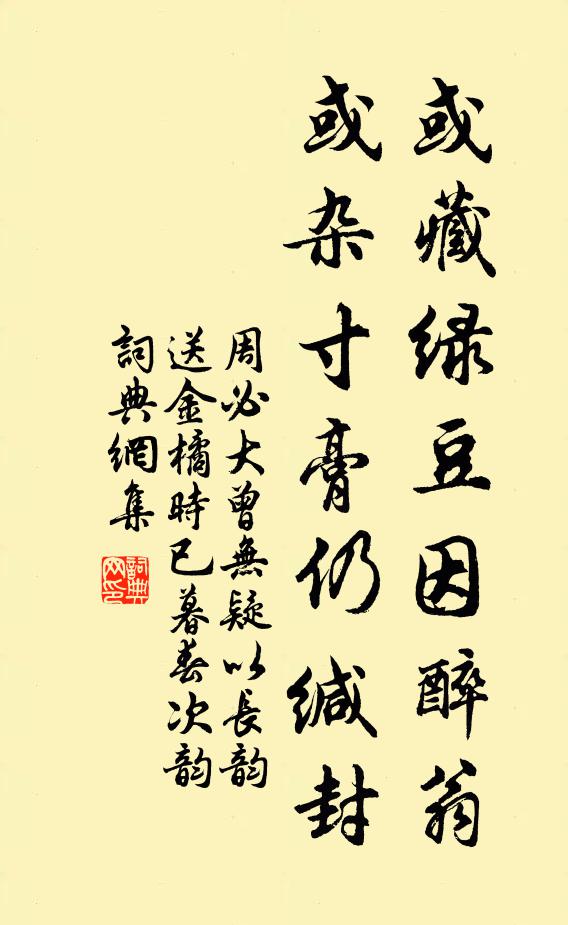 或藏绿豆因醉翁
或杂寸膏仍缄封
周必大曾無疑以長韵
送金橘時已暮春次韵
詞典網集
詞典网印